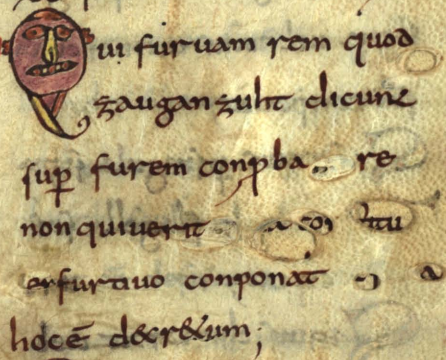 Qui furuam rem quod
gaugangulit dicunt
sup furem conpba re
non quiuerit
furtiuo conponat
hoc decretum;